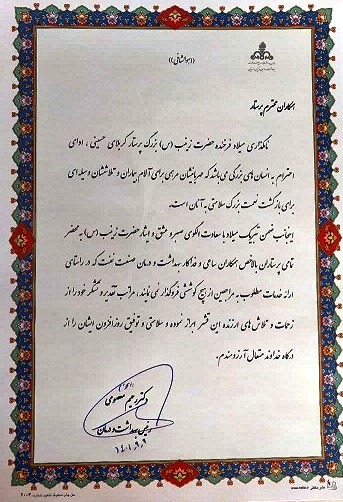 «هوالشافی»
همکاران محترم پرستار
نامگذاری میلاد فرخنده حضرت زینب (س) بزرگ پرستار کربلای حسینی، ادای
احترام به انسان های بزرگی می باشد که مهربانیشان مرهمی برای آلام بیماران و تلاششان وسیله ای
برای بازگشت نعمت بزرگ سلامتی به آنان است.
اینجانب ضمن تبریک میلاد با سعادت الگوی صبر و عشق و ایثار حضرت زینب (س) به محضر
تمامی پرستاران بالاخص همکاران ساعی و فداکار بهداشت و درمان صنعت نفت که در راستای
ارائه خدمات مطلوب به مراجعین از هیچ کوششی فروگذار نمی نمایند، مراتب تقدیر و تشکر خود را از
زحمات و تلاش های ارزنده این قشر ابراز نموده و سلامتی و توفیق روزافزون ایشان را از
درگاه خداوند متعال آرزومندم.
دکتر رحیم معصومی
رئیس بهداشت و درمان